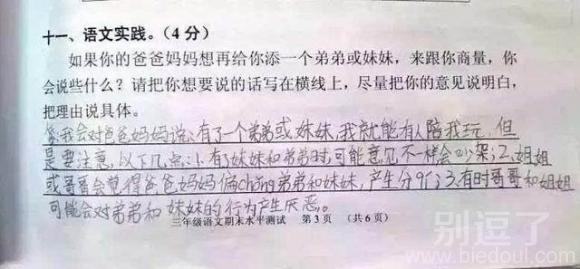 十一、语文实践。(4分)
如果你的爸爸妈妈想再给你添一个弟弟或妹妹，来跟你商量，你
会说些什么？请把你想要说的话写在横线上，尽量把你的意见说明白，
把理由说具体。
我会对爸爸妈妈说：有了一个弟弟或妹妹，我就能有人陪我玩，但
是要注意以下几点：1.有了妹妹和弟弟时，可能意见不一样会吵架；2.姐姐
或哥哥会觉得爸爸妈妈偏chǒng弟弟和妹妹，产生分歧；3.有时哥哥和姐姐
可能会对弟弟和妹妹的行为产生厌恶。
三年级语文期末水平测试 第3页 （共6页）
别逗了
www.biedoul.com